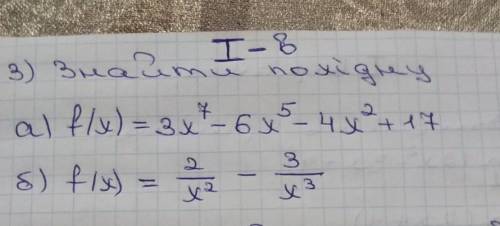 I-в
3) Знайти похідну
а) f(x) = 3x⁷ - 6x⁵ - 4x² + 17
б) f(x) = 2/x² - 3/x³